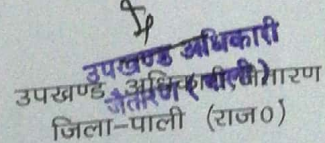 उपखण्ड अधिकारी
जैतारण (पाली)
उपखण्ड अधिकारी जैतारण
जिला-पाली (राज०)